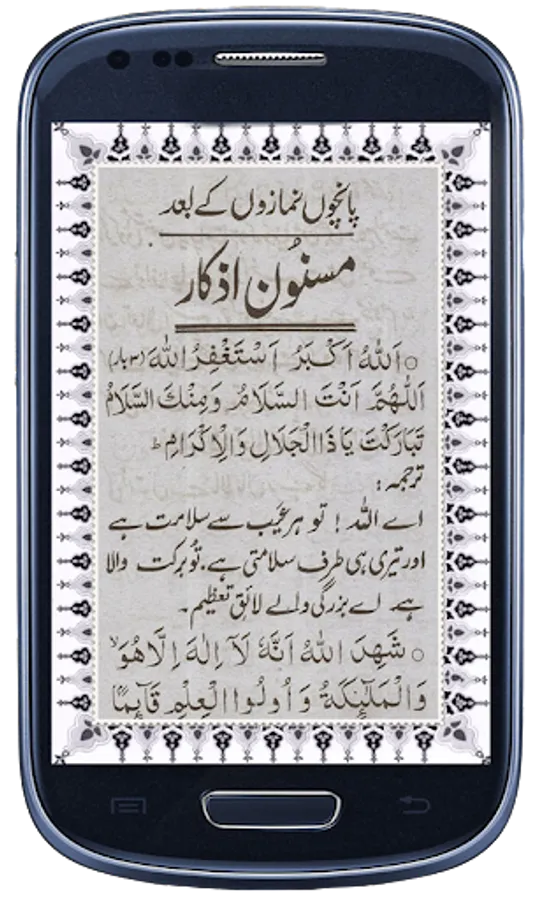 پانچوں نمازوں کے بعد
مسنُون اذکار
○ اَللّٰهُ اَكْبَرُ اَسْتَغْفِرُ اللّٰهَ (۳ بار)
اَللّٰهُمَّ اَنْتَ السَّلَامُ وَمِنْكَ السَّلَامُ
تَبَارَكْتَ يَا ذَا الْجَلَالِ وَالْاِكْرَامِ ط
ترجمہ:
اے اللہ! تو ہر عیب سے سلامت ہے
اور تیری ہی طرف سلامتی ہے، تُو برکت والا
ہے اے بزرگی والے لائق تعظیم۔
○ شَهِدَ اللّٰهُ اَنَّهٗ لَآ اِلٰهَ اِلَّا هُوَ لا
وَالْمَلٰٓئِكَةُ وَ اُولُوا الْعِلْمِ قَآئِمًا